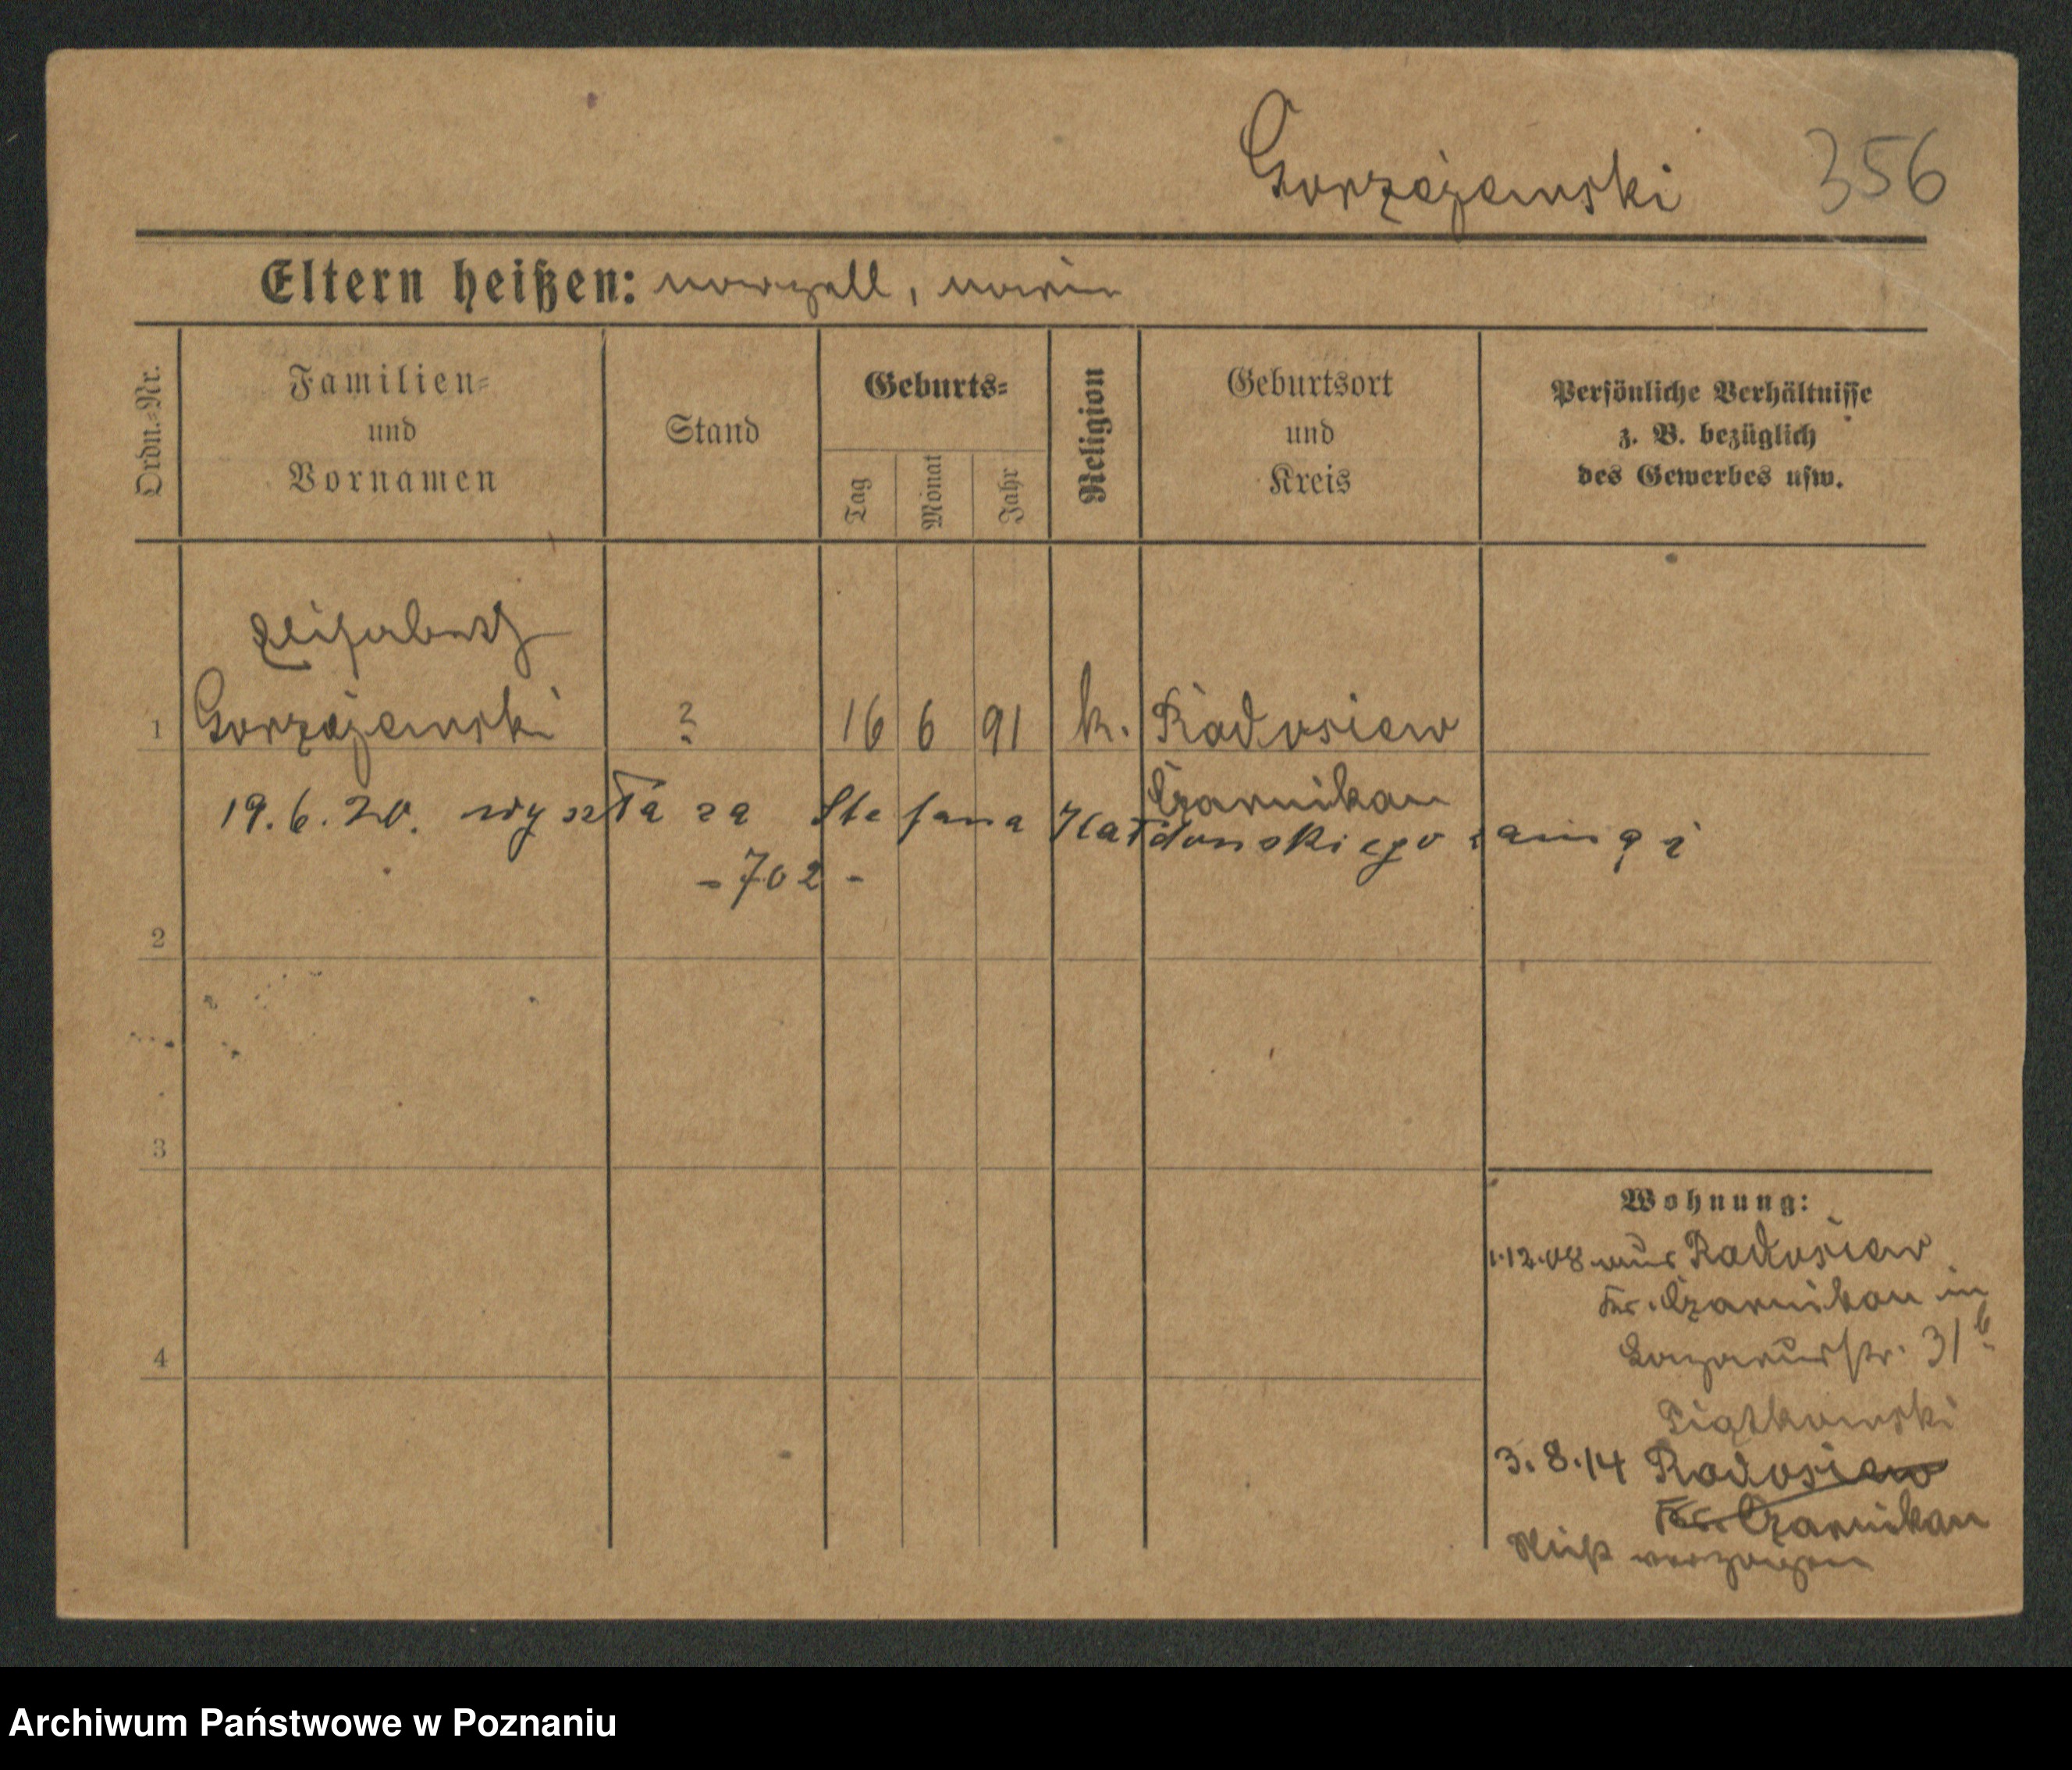 Gorzejewski 356
Eltern heißen: Marzell, Marie
Ordn.-Nr.
Familien-
und
Vornamen
Stand
Geburts-
Tag
Monat
Jahr
Religion
Geburtsort
und
Kreis
Persönliche Verhältnisse
z. B. bezüglich
des Gewerbes usw.
Elisabeth
1 Gorzejewski ? 16 6 91 k. Radosiew
Czarnikau
19.6.20. wyszła za Stefana
-702-
2
3
4
Wohnung:
1.12.08 aus Radosiew
Kr. Czarnikau in
Lazarusstr. 31 b
Piątkowski
3.8.14 Radosiew
Kr. Czarnikau
verzogen
Archiwum Państwowe w Poznaniu